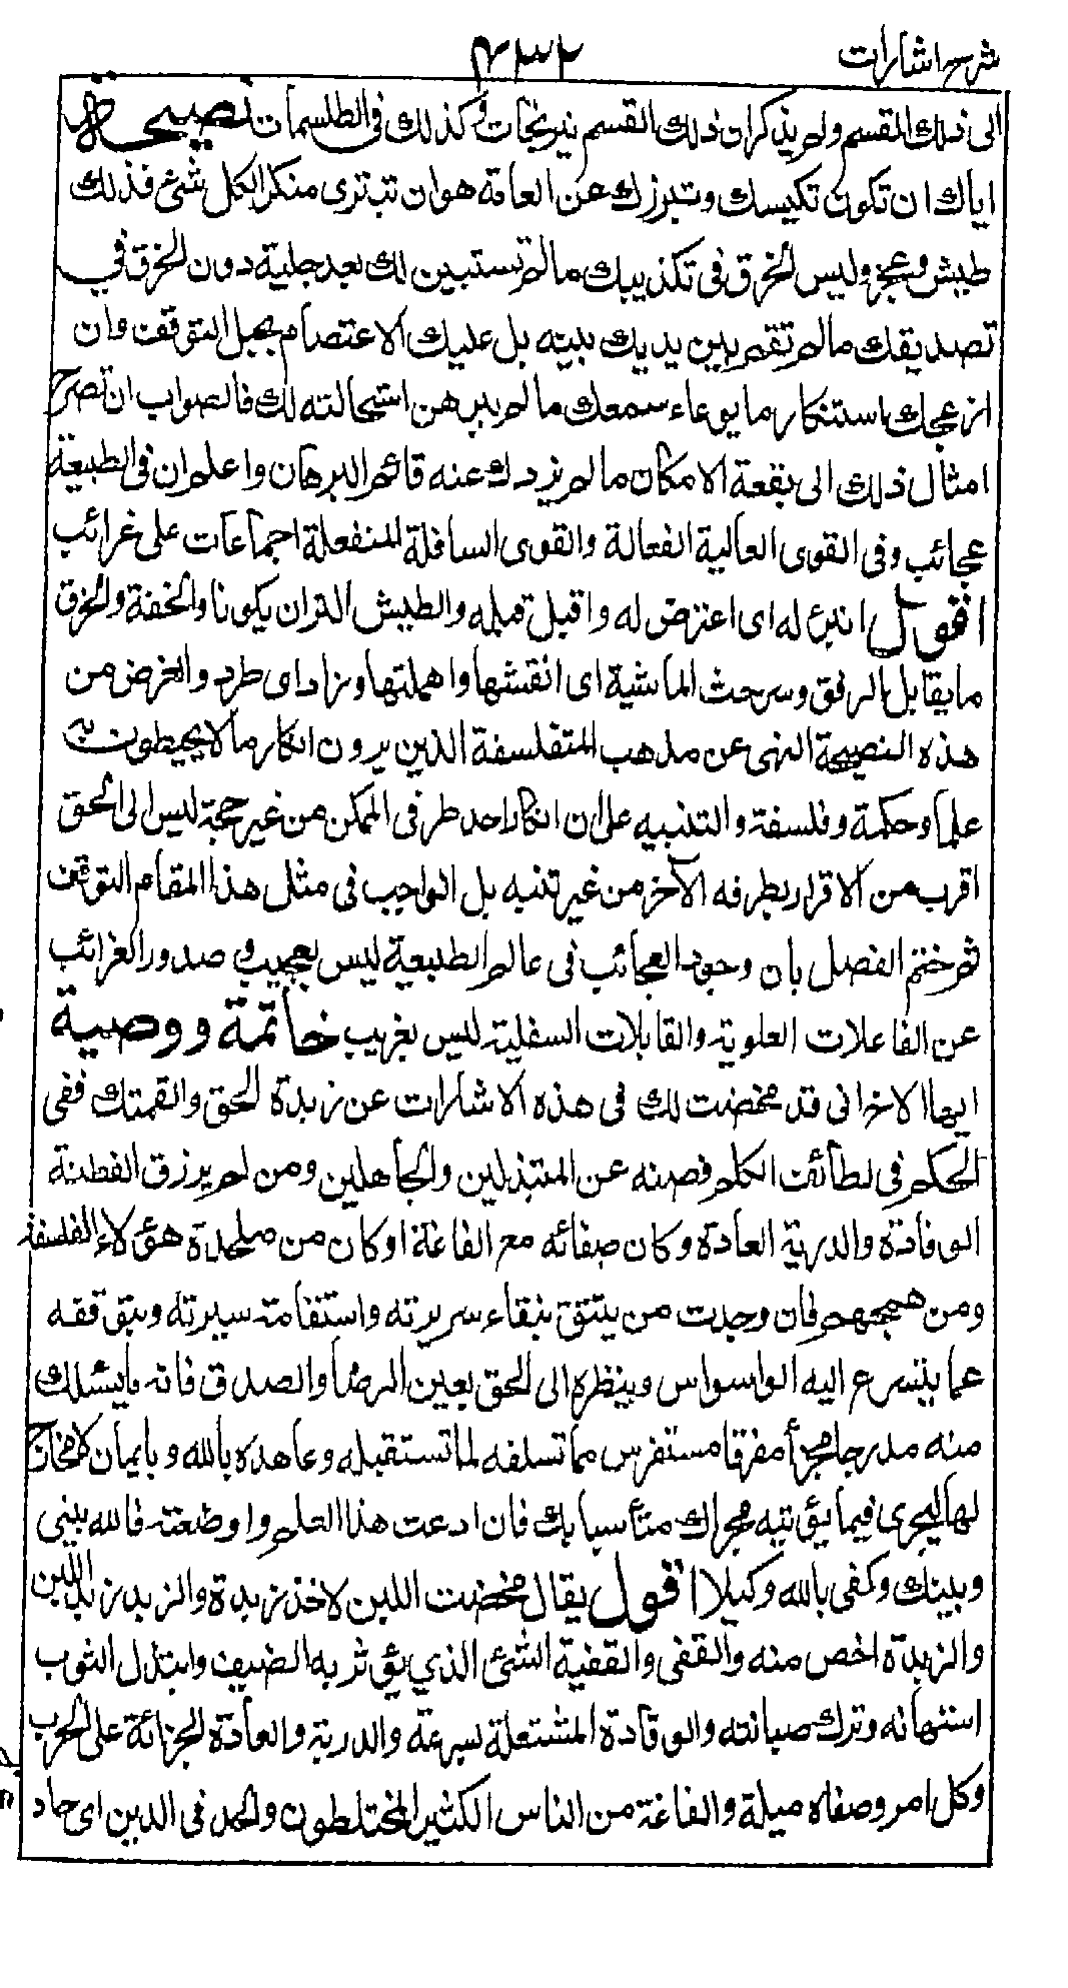 شرح اشارات
٤٣٢
الى ذلك القسم ولم يذكر ان ذلك القسم نيرنجات وكذلك فى الطلسمات نصيحة
اياك ان تكون تكيسك وتبرزك عن العامة هو ان تنبرى منكرا لكل شئ فذلك
طيش وعجز وليس الخرق فى تكذيبك ما لم تستبين لك بعد جلية دون الخرق فى
تصديقك ما لم تقم بين يديك بينه بل عليك الاعتصام بحبل التوقف وان
ازعجك استنكار ما يوعاء سمعك ما لم يبرهن استحالته لك فالصواب ان تسرح
امثال ذلك الى بقعة الامكان ما لم يزدك عنه قائم البرهان واعلم ان فى الطبيعة
عجائب وفى القوى العالية الفعالة والقوى السافلة المنفعلة اجتماعات على غرائب
اقول انبرى له اى اعترض له واقبل قبله والطيش النزان يكونا والخفة والخرق
ما يقابل الرفق وسرحت الماشية اى انفشها واهملتها وزاد اى طرد والغرض من
هذه النصيحة النهى عن مذهب المتفلسفة الذين يرون انكار ما لا يحيطون به
علما وحكمة وفلسفة والتنبيه على ان انكار احد طرفى الممكن من غير حجة ليس الى الحق
اقرب من الاقرار بطرفه الآخر من غير تنبه بل الواجب فى مثل هذا المقام التوقف
ثم ختم الفصل بان وجود العجائب فى عالم الطبيعة ليس بعجيب و صدور الغرائب
عن الفاعلات العلوية والقابلات السفلية ليس بغريب خاتمة ووصية
ايها الاخ انى قد مخضت لك فى هذه الاشارات عن زبدة الحق والقمتك قفى
الحكم فى لطائف الكلم فصنه عن المتبذلين والجاهلين ومن لم يرزق الفطنة
الوقادة والدربة العادة وكان صفائه مع الغاغة او كان من ملحدة هؤلاء الفلسفة
ومن همجهم فان وجدت من يتثق بنقاء سريرته واستقامة سيرته وبتوقفه
عما يتسرع اليه الواسواس وبنظره الى الحق بعين الرضا والصدق فاته ما يسئلك
منه مدرجا مجزأ مفرقا مستفرس مما تسلفه لما تستقبله وعاهده بالله وبايمان لا مخارج
لها ليجرى فيما يؤتيه مجراك متأسيا بك فان اذعت هذا العلم واوضعته فالله بينى
وبينك وكفى بالله وكيلا اقول يقال مخضت اللبن لاخذ زبدة والزبد زبد اللبن
والزبدة اخص منه والقفى والقفية الشئ الذي يؤثر به الضيف وابتذل الثوب
استهانه وترك صيانته والوقادة المشتعلة بسرعة والدربة والعادة الجزائة على الحرب
وكل امر وصفاه ميلة والغاغة من الناس الكثير المختلطون والحد فى الدين اى حاد